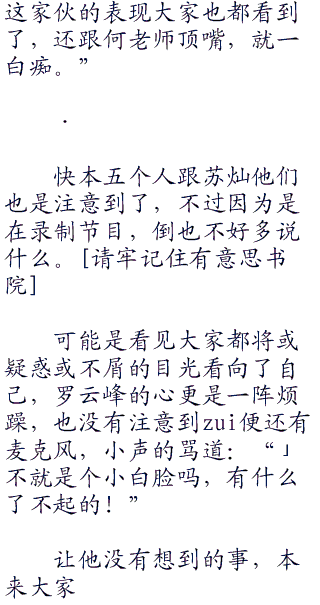 这家伙的表现大家也都看到
了，还跟何老师顶嘴，就一
白痴。”
.
快本五个人跟苏灿他们
也是注意到了，不过因为是
在录制节目，倒也不好多说
什么。[请牢记住有意思书
院]
可能是看见大家都将或
疑惑或不屑的目光看向了自
己，罗云峰的心更是一阵烦
躁，也没有注意到zui便还有
麦克风，小声的骂道：“」
不就是个小白脸吗，有什么
了不起的！”
让他没有想到的事，本
来大家